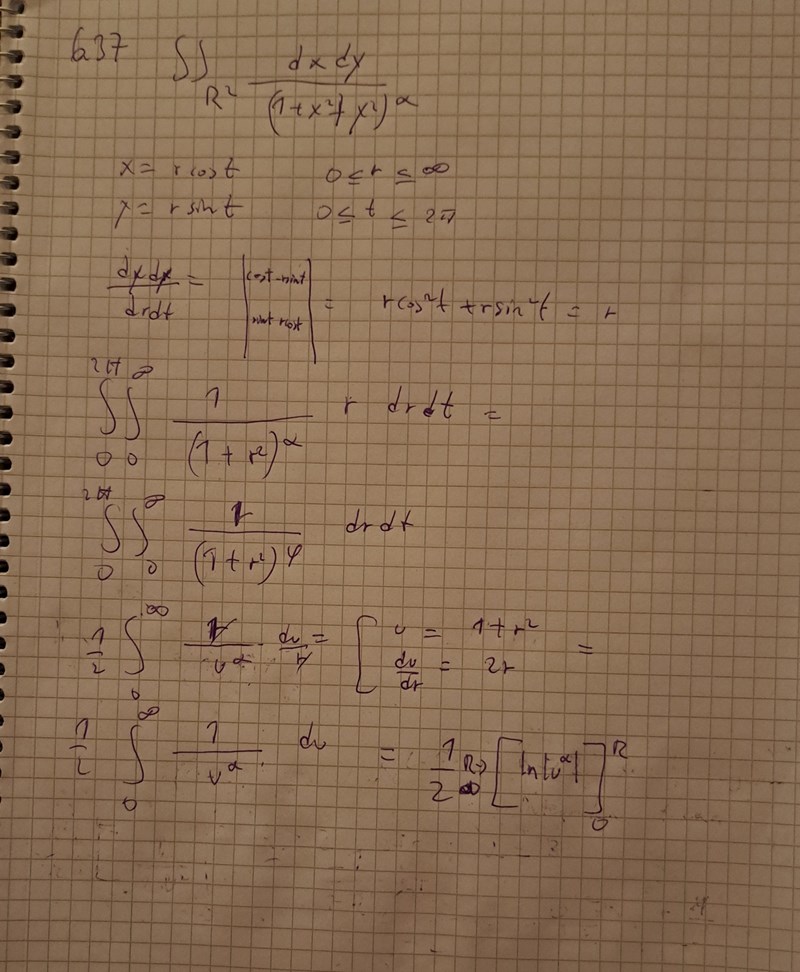 637 ∬_R² dx dy / (1+x²+y²)^α
x = r cos t 0 ≤ r ≤ ∞
y = r sin t 0 ≤ t ≤ 2π
dx dy / dr dt = | cos t -rsin t ; sin t rcos t | = r cos² t + r sin² t = r
∫_0^2π ∫_0^∞ 1 / (1+r²)^α r dr dt =
∫_0^2π ∫_0^∞ r / (1+r²)^α dr dt
1/2 ∫_0^∞ r / u^α du/r = [ u = 1+r² =
du/dr = 2r
1/2 ∫_0^∞ 1 / u^α du = 1/2 R→∞ [ ln|u^α| ]_0^R